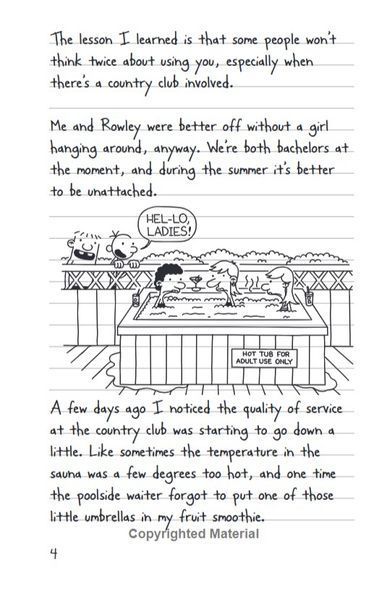 The lesson I learned is that some people won't
think twice about using you, especially when
there's a country club involved.
Me and Rowley were better off without a girl
hanging around, anyway. We're both bachelors at
the moment, and during the summer it's better
to be unattached.
HEL-LO,
LADIES!
HOT TUB FOR
ADULT USE ONLY
A few days ago I noticed the quality of service
at the country club was starting to go down a
little. Like sometimes the temperature in the
sauna was a few degrees too hot, and one time
the poolside waiter forgot to put one of those
little umbrellas in my fruit smoothie.
Copyrighted Material
4